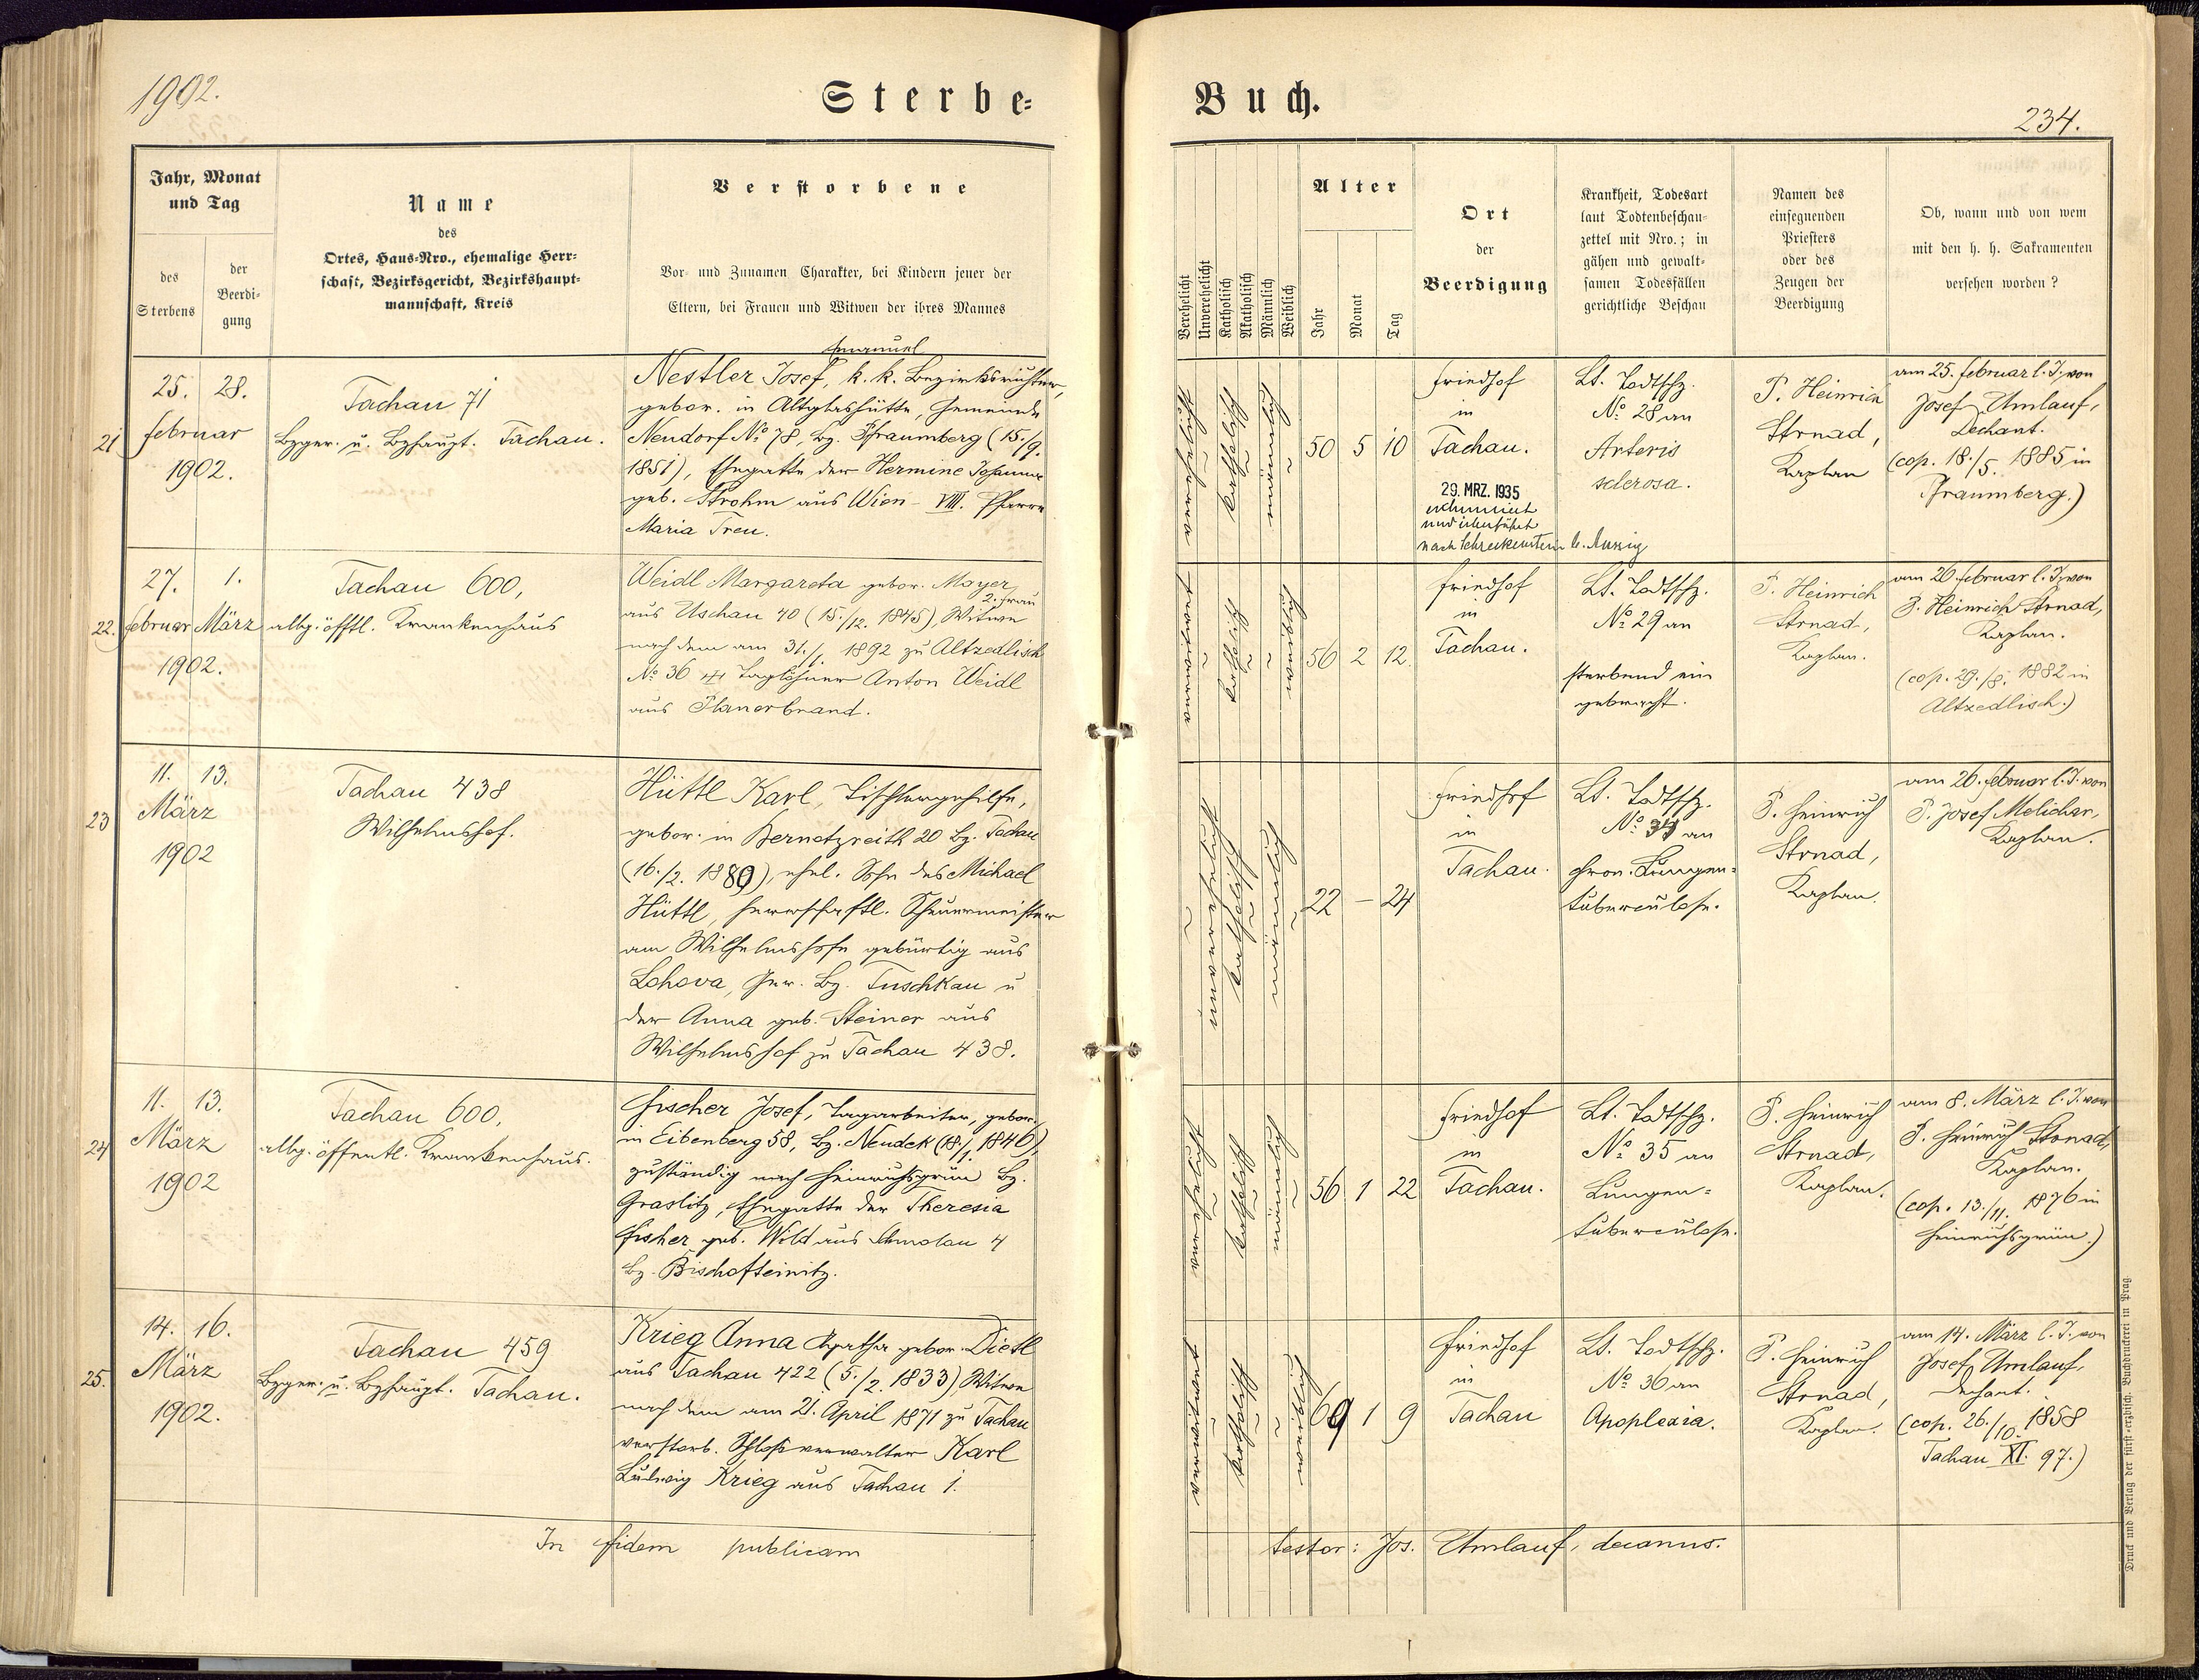 1902.
Sterbe-
Jahr, Monat
und Tag
des
Sterbens
der
Beerdi-
gung
Name
des
Ortes, Haus-Nro., ehemalige Herr-
schaft, Bezirksgericht, Bezirkshaupt-
mannschaft, Kreis
Verstorbene
Vor- und Zunamen Charakter, bei Kindern jener der
Eltern, bei Frauen und Witwen der ihres Mannes
21
25. 28.
Februar
1902.
Tachau 71
Bzger. u. Bzhaupt. Tachau.
Emanuel
Nestler Josef, k. k. Bezirksrichter,
gebor. in Altglashütte, Gemeinde
Neudorf No 78, Bz. Pfraumberg (15./9.
1851), Ehegatte der Hermine Johanna
geb. Strohm aus Wien - VIII. Pfarre
Maria Treu.
22.
27. 1.
Februar März
1902.
Tachau 600,
allg. öfftl. Krankenhaus
Weidl Margareta gebor. Mayer
2. Frau
aus Uschau 40 (15./12. 1845) Witwe
nach dem am 31./1. 1892 zu Altzedlisch
No 36 Taglöhner Anton Weidl
aus Planerbrand.
23
11. 13.
März
1902
Tachau 438
Wilhelmshof.
Hüttl Karl, Tischlergehilfe,
gebor. in Bernetzreith 20 Bz. Tachau
(16./2. 1880), ehel. Sohn des Michael
Hüttl, herrschaftl. Scheuermeister
am Wilhelmshofe gebürtig aus
Lohova, Ger. Bz. Tuschkau u
der Anna geb. Steiner aus
Wilhelmshof zu Tachau 438.
24
11. 13.
März
1902
Tachau 600,
allg. öffentl. Krankenhaus.
Fischer Josef, Tagarbeiter, gebor.
in Eibenberg 58, Bz. Neudek (18./1. 1846),
zuständig nach Heinrichsgrün Bz.
Graslitz, Ehegatte der Theresia
Fischer geb. Wild aus 4
Bz. Bischofteinitz.
25.
14. 16.
März
1902.
Tachau 459
Bzger. u. Bzhaupt. Tachau.
Krieg Anna Agatha gebor. Dietl
aus Tachau 422 (5./2. 1833) Witwe
nach dem am 21. April 1871 zu Tachau
verstorb. Schlossverwalter Karl
Ludwig Krieg aus Tachau 1.
In fidem publicam
Buch.
234.
Verehelicht
Unverehelicht
Katholisch
Akatholisch
Männlich
Weiblich
Alter
Jahr
Monat
Tag
Ort
der
Beerdigung
Krankheit, Todesart
laut Todtenbeschau-
zettel mit Nro.; in
gähen und gewalt-
samen Todesfällen
gerichtliche Beschau
Namen des
einsegnenden
Priesters
oder des
Zeugen der
Beerdigung
Ob, wann und von wem
mit den h. h. Sakramenten
versehen worden?
verehelicht
katholisch
männlich
50 5 10
Friedhof
in
Tachau.
29. MRZ. 1935
exhumiert
und überführt
nach Schreckenstein b. Aussig
Lt. Todtschz.
No 28 an
Arteris
sclerosa.
P. Heinrich
Strnad,
Kaplan
am 25. Februar l. J. von
Josef Umlauf,
Dechant.
(cop. 18./5. 1885 in
Pfraumberg.)
verwitwet
katholisch
weiblich
56 2 12.
Friedhof
in
Tachau.
Lt. Todtschz.
No 29 an
sterbend ein
gebracht.
P. Heinrich
Strnad,
Kaplan.
am 26. Februar l. J. von
P. Heinrich Strnad,
Kaplan.
(cop. 29./8. 1882 in
Altzedlisch.)
unverehelicht
katholisch
männlich
22 - 24
Friedhof
in
Tachau.
Lt. Todtschz.
No 34 an
chron. Lungen-
tuberculose.
P. Heinrich
Strnad,
Kaplan.
am 26. Februar l. J. von
P. Josef Melichar,
Kaplan.
verehelicht
katholisch
männlich
56 1 22
Friedhof
in
Tachau.
Lt. Todtschz.
No 35 an
Lungen-
tuberculose.
P. Heinrich
Strnad,
Kaplan.
am 8. März l. J. von
P. Heinrich Strnad,
Kaplan.
(cop. 13./11. 1876 in
Heinrichsgrün.)
verwitwet
katholisch
weiblich
69 1 9
Friedhof
in
Tachau
Lt. Todtschz.
No 36 an
Apoplexia.
P. Heinrich
Strnad,
Kaplan.
am 14. März l. J. von
Josef Umlauf,
Dechant.
(cop. 26./10. 1858
Tachau XI. 97.)
testor: Jos. Umlauf, decanus.
Druck und Verlag der fürst-erzbisch. Buchdruckerei in Prag.